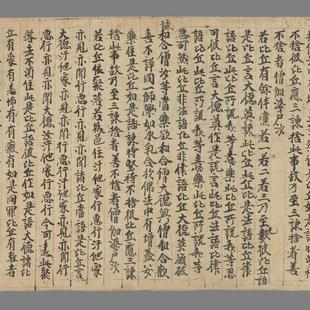 不捨彼比丘應三諫捨此事故乃至三諫捨者善
不捨者僧伽婆尸沙
若比丘有餘伴黨若一若二若三乃至無數彼比丘語
是比丘言大德莫諫此比丘此比丘是法語比丘律
語比丘此比丘所說我等喜樂此比丘所說我等忍
可彼比丘言大德莫作是說言此比丘法語比丘律
語比丘此比丘所說我等喜樂此比丘所說我等
忍可然此比丘非法語比丘非律語比丘大德莫欲破
壞和合僧汝等當樂欲和合僧大德與僧和合歡
喜不諍同一師學如水乳合於佛法中有增益安
樂住是比丘如是諫時堅持不捨彼比丘應三諫
捨此事故乃至三諫捨者善不捨者僧伽婆尸沙
若比丘依聚落若城邑住汙他家行惡行汙他家
亦見亦聞行惡行亦見亦聞諸比丘當語是比丘言
大德汙他家行惡行汙他家亦見亦聞行
惡行亦見亦聞大德汝汙他家行惡行今可遠此聚
落去不須住此是比丘語彼比丘作如是語大德諸比
丘有愛有恚有怖有癡有如是同罪比丘有驅者